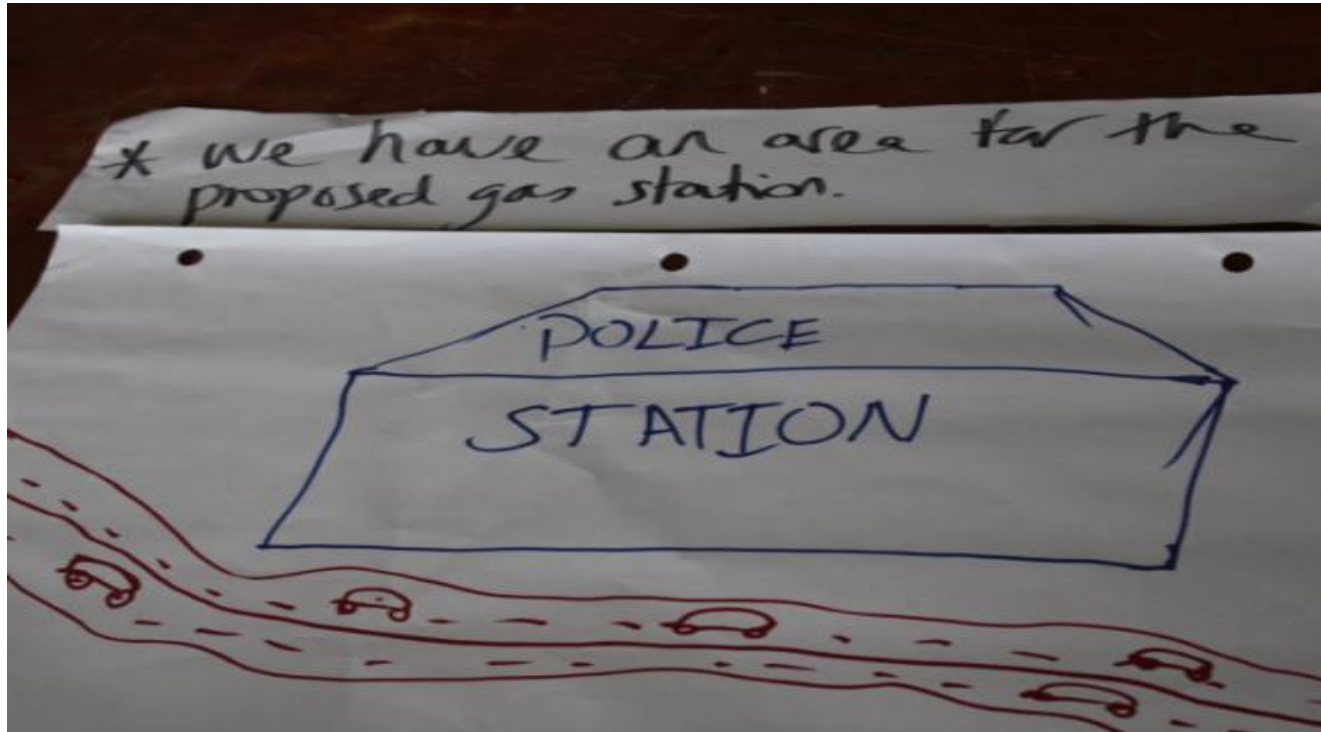 * we have an area for the
proposed gas station.
POLICE
STATION